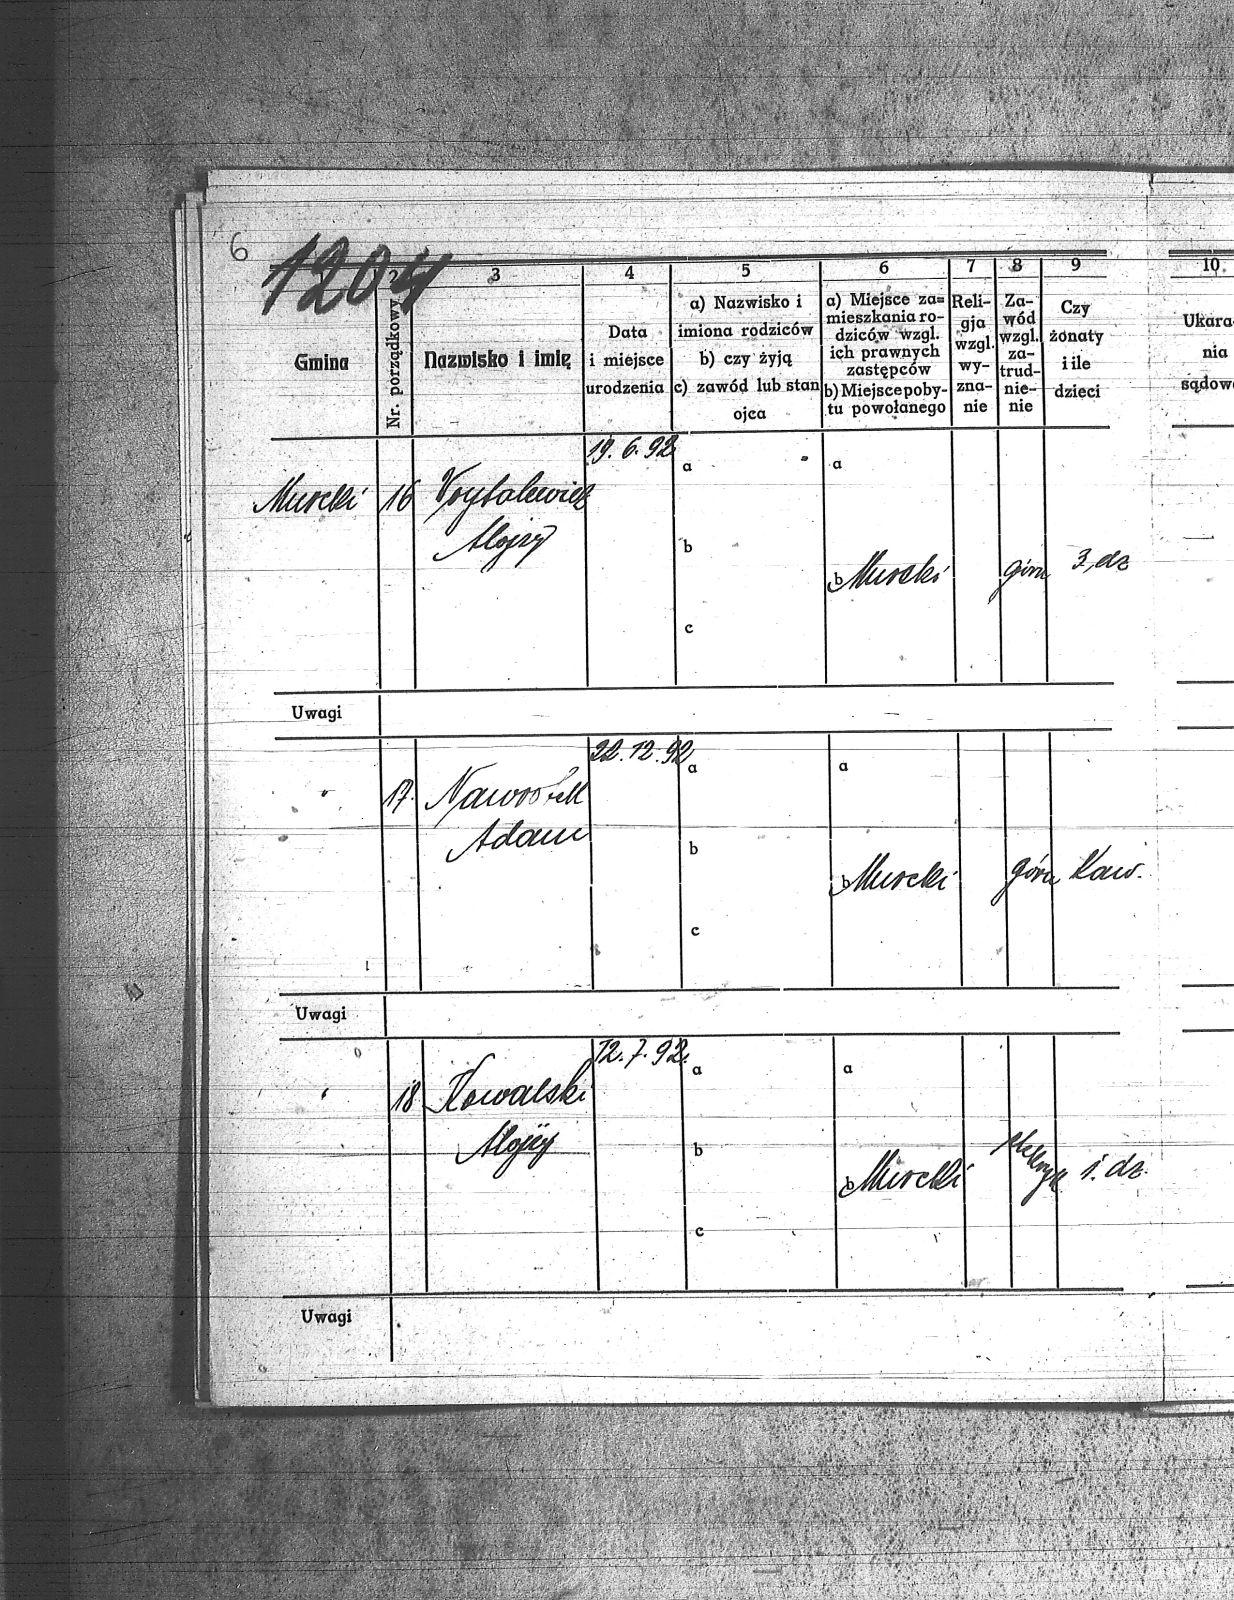 6
1204
2 3 4 5 6 7 8 9 10
Gmina
Nr. porządkowy
Nazwisko i imię
Data
i miejsce
urodzenia
a) Nazwisko i
imiona rodziców
b) czy żyją
c) zawód lub stan
ojca
a) Miejsce za=
mieszkania ro-
dziców wzgl.
ich prawnych
zastępców
b) Miejsce poby-
tu powołanego
Reli-
gja
wzgl.
wy-
zna-
nie
Za-
wód
wzgl.
za-
trud-
nie-
nie
Czy
żonaty
i ile
dzieci
Ukara-
nia
sądow
19.6.92
a a
Murcki 16
Alojzy
b
b Murcki górn 3, dz
c
Uwagi
22.12.92
a a
" 17.
Adam
b
b Murcki górn Kaw.
c
Uwagi
12.7.92.
a a
" 18 Kowalski
Alojzy
b
b Murcki 1. dz.
c
Uwagi